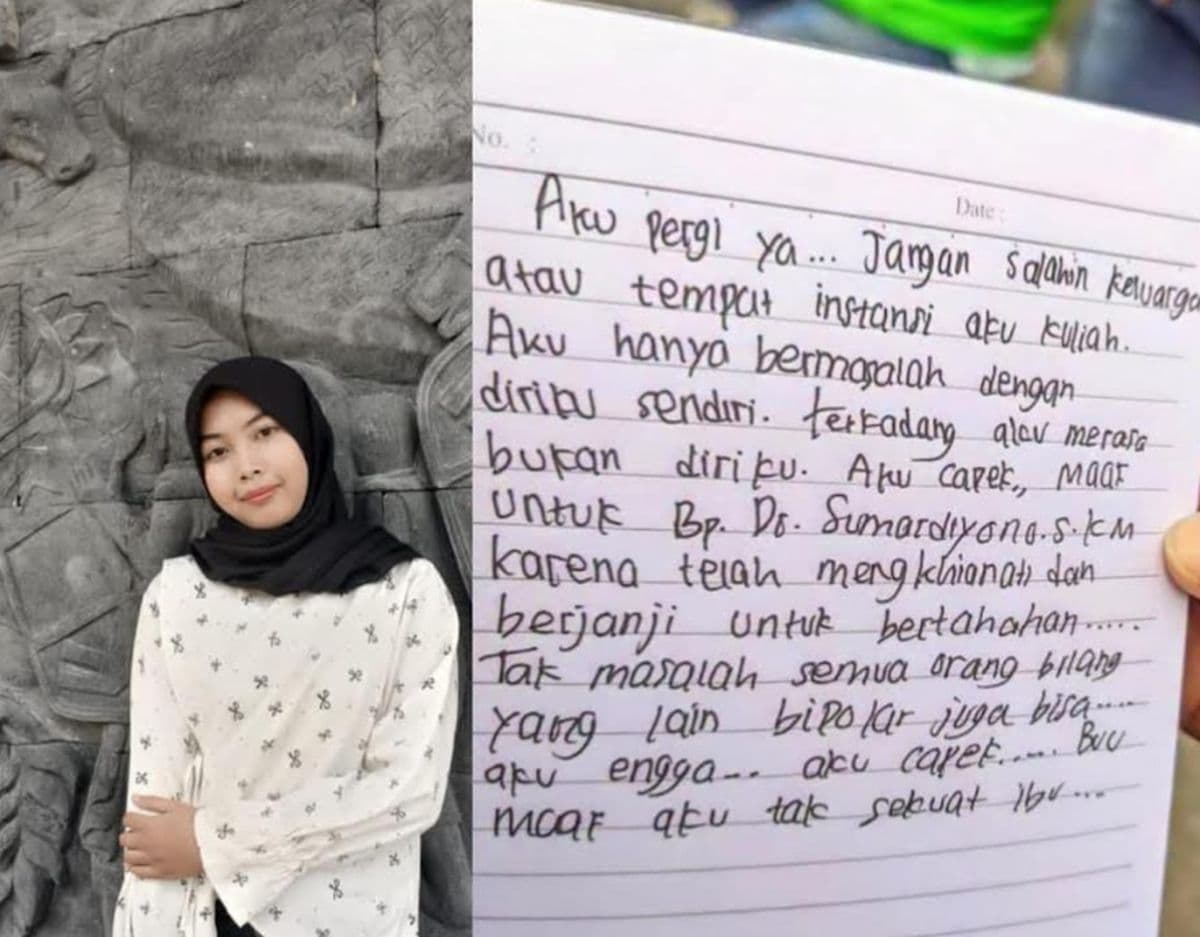 No. :
Date :
Aku pergi ya... Jangan salahin keluarga
atau tempat instansi aku kuliah.
Aku hanya bermasalah dengan
diriku sendiri. terkadang aku merasa
bukan diriku. Aku capek., maaf
untuk Bp. Dr. Sumardiyono.S.KM
karena telah mengkhianati dan
berjanji untuk bertahahan.....
Tak masalah semua orang bilang
yang lain bipolar juga bisa....
aku engga... aku capek..... Buu
maaf aku tak sekuat ibu...